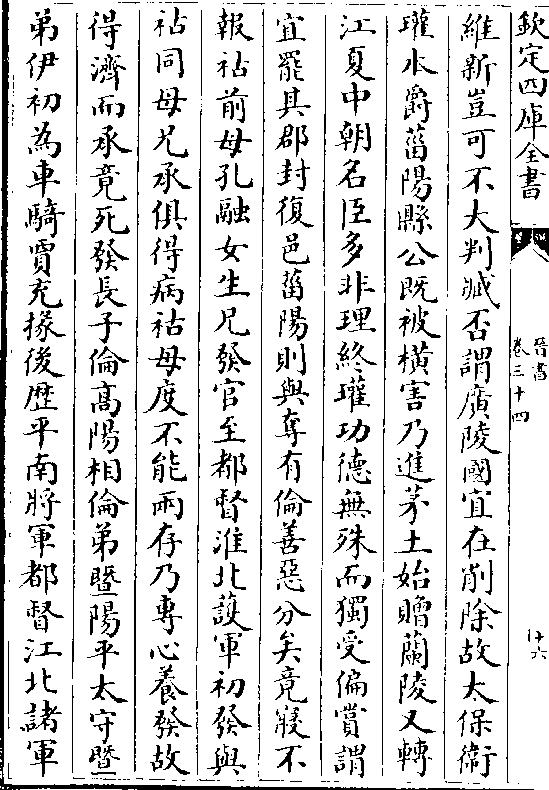 欽定四庫全書
晉書
卷三十四
十六
維新豈可不大判臧否謂廣陵國宜在削除故太保衛
瓘本爵菑陽縣公既被橫害乃進茅土始贈蘭陵又轉
江夏中朝名臣多非理終瓘功德無殊而獨受偏賞謂
宜罷其郡封復邑菑陽則與奪有倫善惡分矣竟寢不
報祜前母孔融女生兄發官至都督淮北護軍初發與
祜同母兄承俱得病祜母度不能兩存乃專心養發故
得濟而承竟死發長子倫髙陽相倫弟暨陽平太守暨
弟伊初為車騎賈充掾後歴平南將軍都督江北諸軍